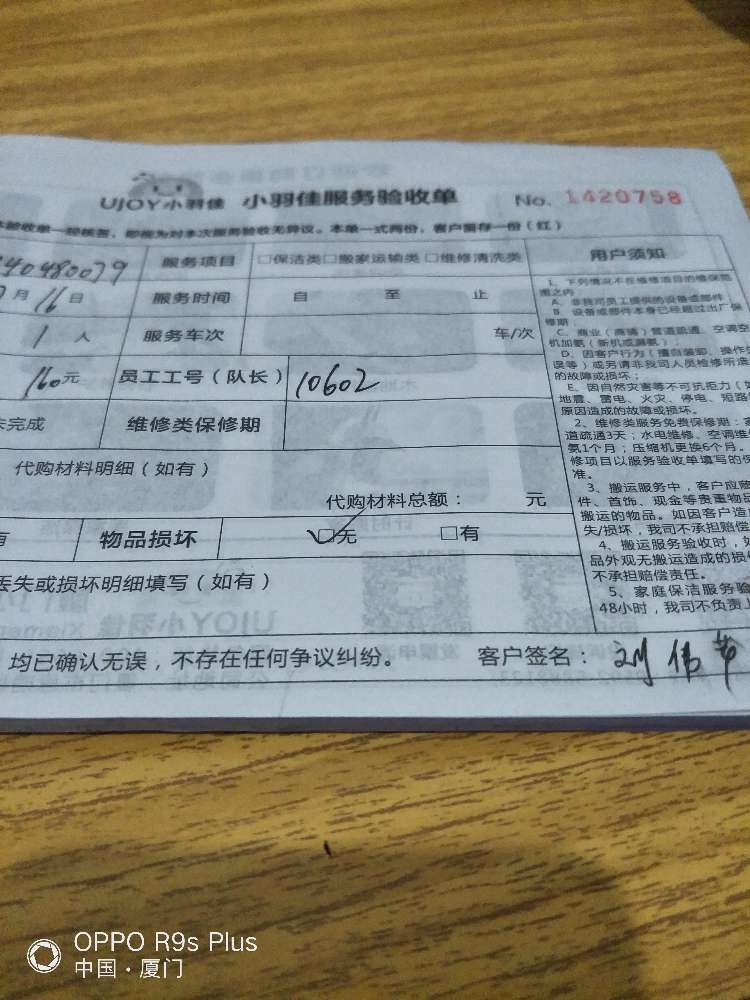 UJOY小羽佳 小羽佳服务验收单 No. 1420758
验收单一经核签，即视为对本次服务验收无异议。本单一式两份，客户留存一份（红）
40480079 服务项目 □保洁类□搬家运输类□维修清洗类 用户须知
月16日 服务时间 自 至 止
1人 服务车次 车/次
160元 员工工号（队长） 10602
未完成 维修类保修期
代购材料明细（如有）
代购材料总额： 元
有 物品损坏 ☑无 □有
丢失或损坏明细填写（如有）
均已确认无误，不存在任何争议纠纷。 客户签名：
1、下列情况不在维修项目的维保范
围之内
A、非我司员工提供的设备或部件
B、设备或部件本身已经超过出厂保
修期；
C、商业（商铺）管道疏通、空调保
机加氨（新机或漏氨）；
D、因客户行为（擅自装卸、操作失
误等）或另请非我司人员检修所造
的故障或损坏；
E、因自然灾害等不可抗拒力（如
地震、雷电、火灾、停电、短路
原因造成的故障或损坏。
2、维修类服务免费保修期：家
道疏通3天；水电维修、空调维
氨1个月；压缩机更换6个月。
修项目以服务验收单填写的保
准。
3、搬运服务中，客户应随
件、首饰、现金等贵重物品
搬运的物品。如因客户造成
失/损坏，我司不承担赔偿
4、搬运服务验收时，如
品外观无搬运造成的损
不承担赔偿责任。
5、家庭保洁服务验
48小时，我司不负责
OPPO R9s Plus
中国·厦门